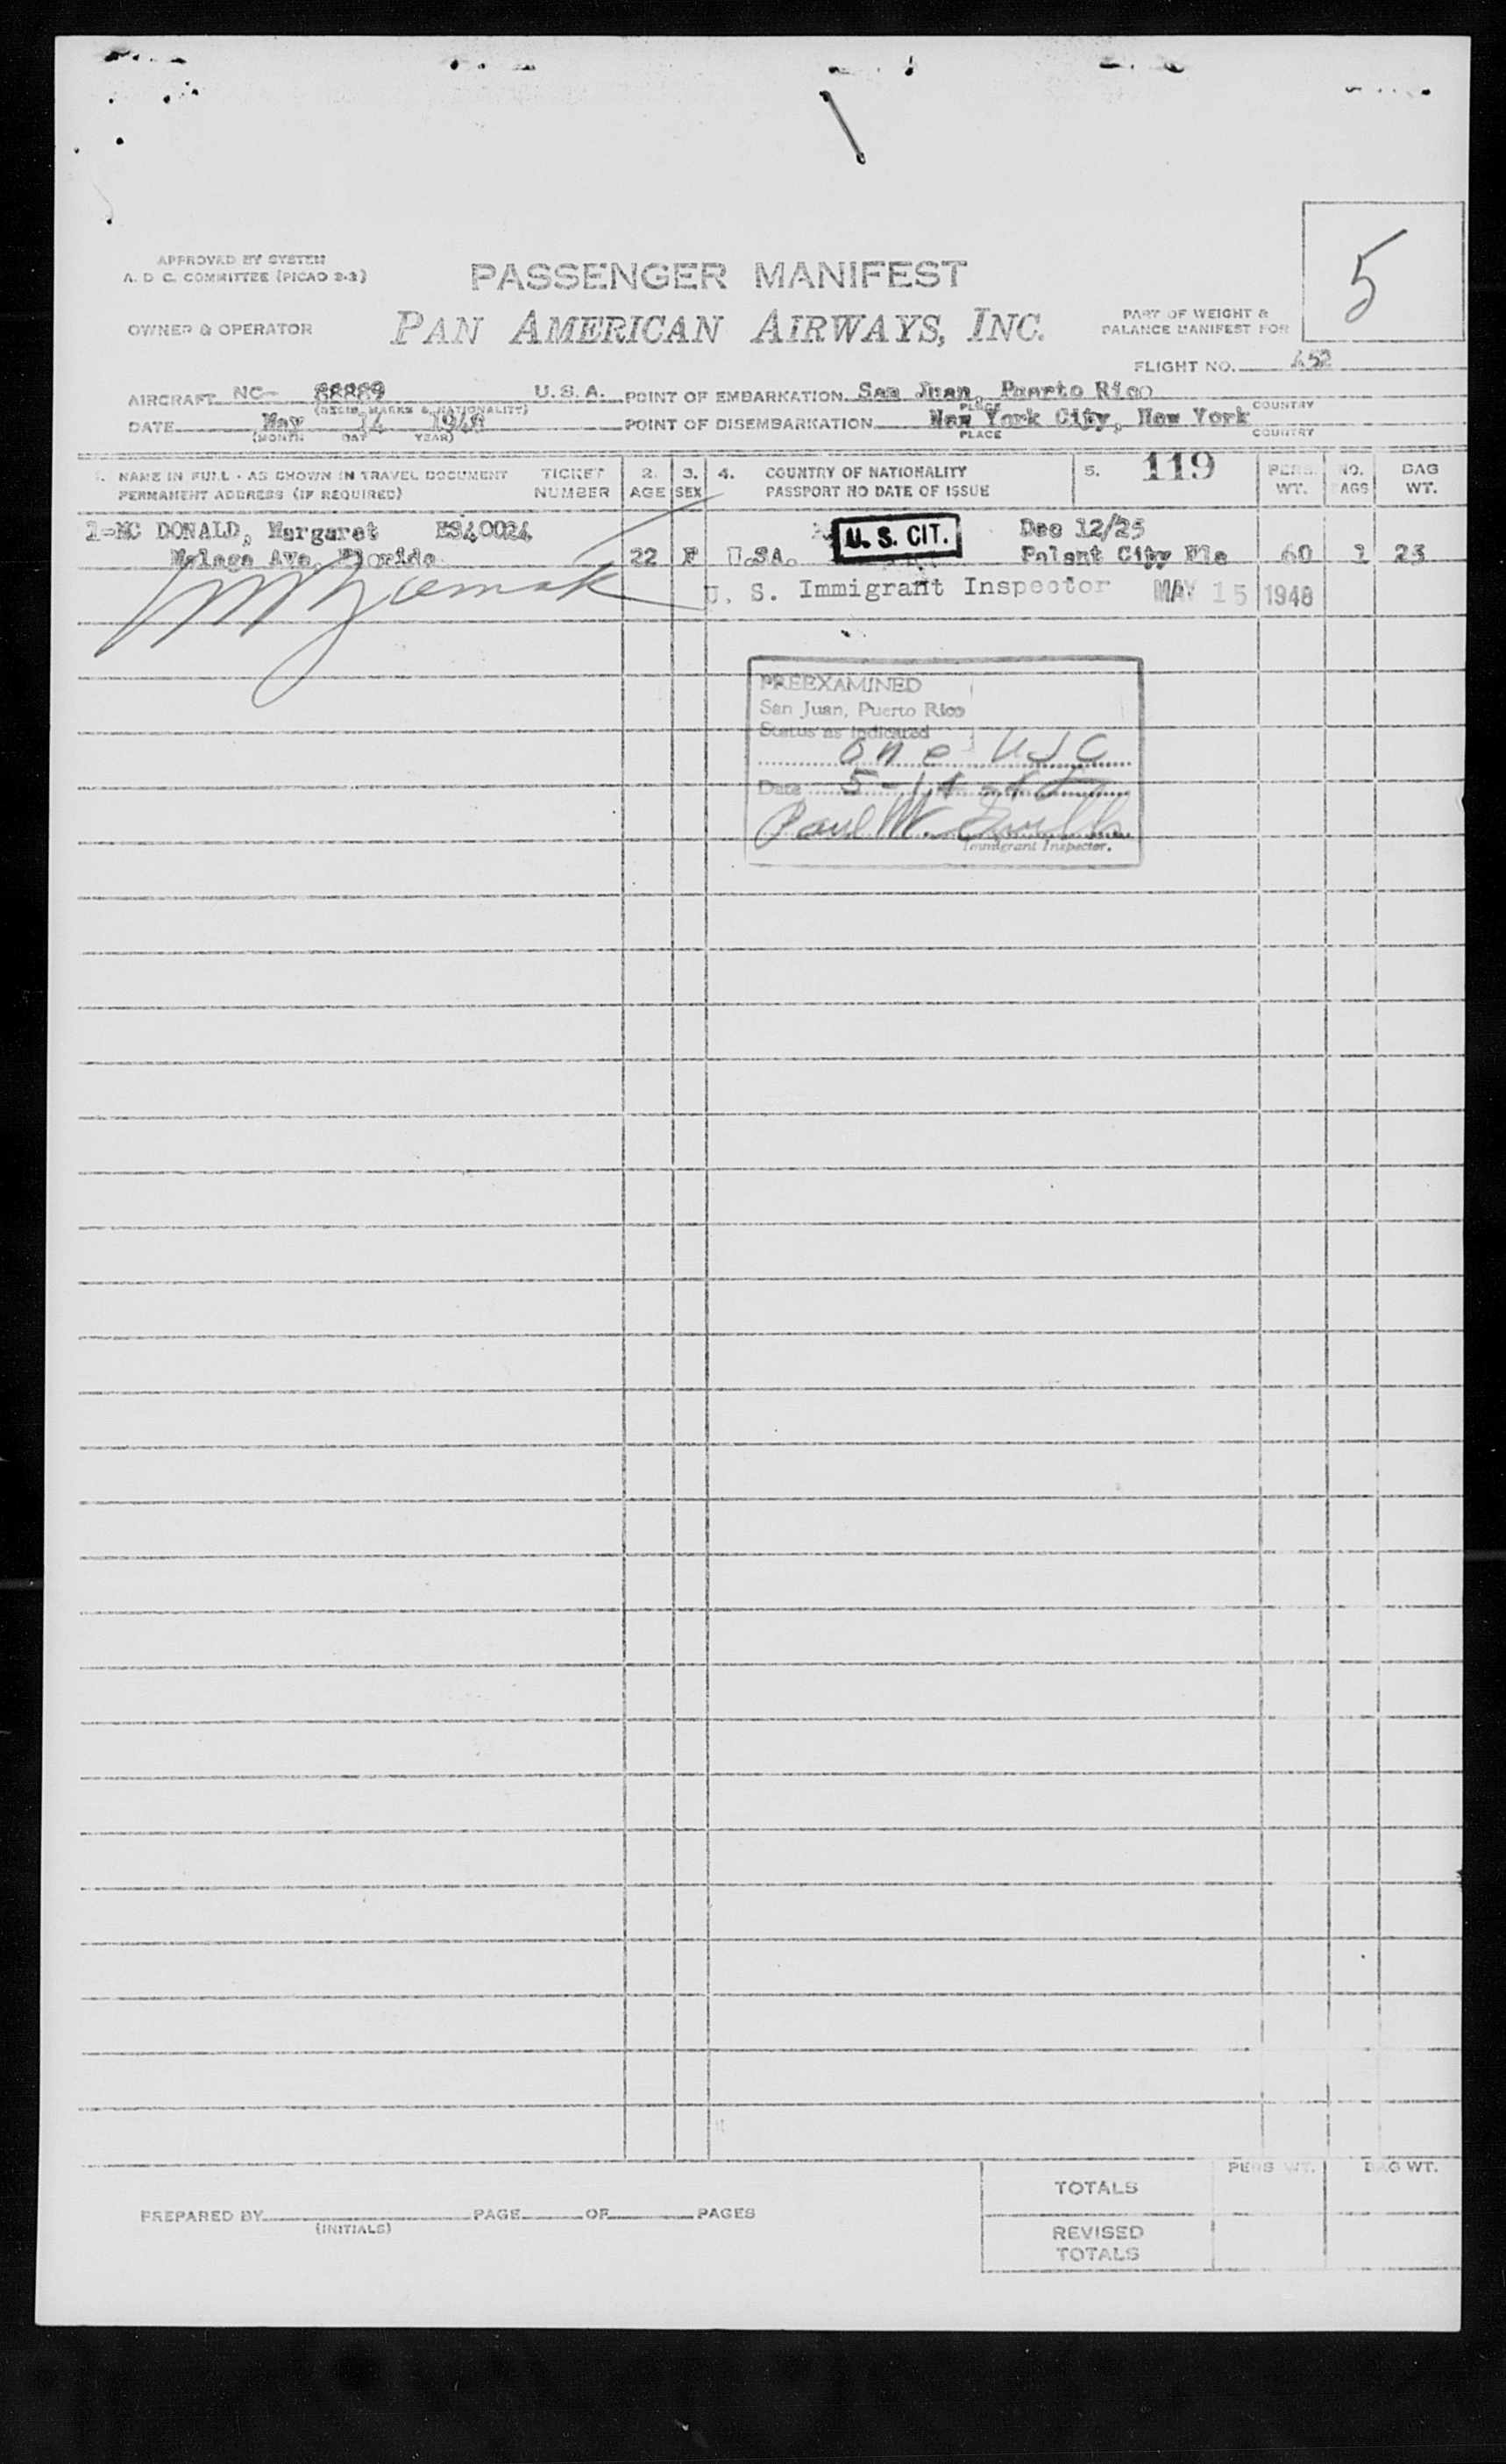 5
APPROVED BY SYSTEM
A. D. C. COMMITTEE (PICAO 2-3)
PASSENGER MANIFEST
OWNER & OPERATOR PAN AMERICAN AIRWAYS, INC.
PART OF WEIGHT &
BALANCE MANIFEST FOR
FLIGHT NO. 452
AIRCRAFT NC- 88889 U. S. A. POINT OF EMBARKATION San Juan, Puerto Rico
(REGIS. MARKS & NATIONALITY) PLACE COUNTRY
DATE May 14 1948 POINT OF DISEMBARKATION New York City, New York
(MONTH DAY YEAR) PLACE COUNTRY
1. NAME IN FULL - AS SHOWN IN TRAVEL DOCUMENT TICKET 2. 3. 4. COUNTRY OF NATIONALITY 5. 119 PERS. NO. BAG
PERMANENT ADDRESS (IF REQUIRED) NUMBER AGE SEX PASSPORT NO DATE OF ISSUE WT. BAGS WT.
1-MC DONALD, Margaret ES40024 U. S. CIT. Dec 12/25
Malaga Ave, Florida 22 F U.SA. Palant City Fla 60 1 23
U. S. Immigrant Inspector MAY 15 1948
PREEXAMINED
San Juan, Puerto Rico
Status as indicated
One USC
Date 5-14-48
Paul W.
Immigrant Inspector.
PERS WT. BAG WT.
TOTALS
PREPARED BY PAGE OF PAGES
(INITIALS)
REVISED
TOTALS